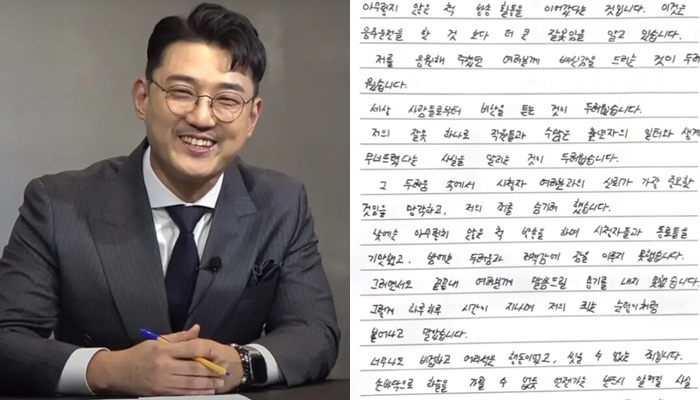 아무렇지 않은 척 방송 활동을 이어갔다는 것입니다. 이것은
음주운전을 한 것 보다 더 큰 잘못임을 알고 있습니다.
저를 응원해 주셨던 여러분께 배신감을 드리는 것이 두려
웠습니다.
세상 사람들로부터 비난을 듣는 것이 두려웠습니다.
저의 잘못 하나로 직원들과 수많은 출연자의 일터와 생계
무너뜨렸다는 사실을 알리는 것이 두려웠습니다.
그 두려움 속에서 시청자 여러분과의 신뢰가 가장 중요한
것임을 망각하고, 저의 죄를 숨기려 했습니다.
낮에는 아무렇지 않은 척 방송을 하며 시청자들과 동료들을
기만했고, 밤에는 두려움과 죄책감에 잠을 이루지 못했습니다.
그러면서도 끝끝내 여러분께 말씀드릴 용기를 내지 못했습니다.
그렇게 하루하루 시간이 지나며 저의 죄는 눈덩이처럼
불어나고 말았습니다.
너무나도 비겁하고 어리석은 행동이었고, 씻을 수 없는 죄입니다.
손바닥으로 하늘을 가릴 수 없듯 언젠가는 반드시 알려질 사실